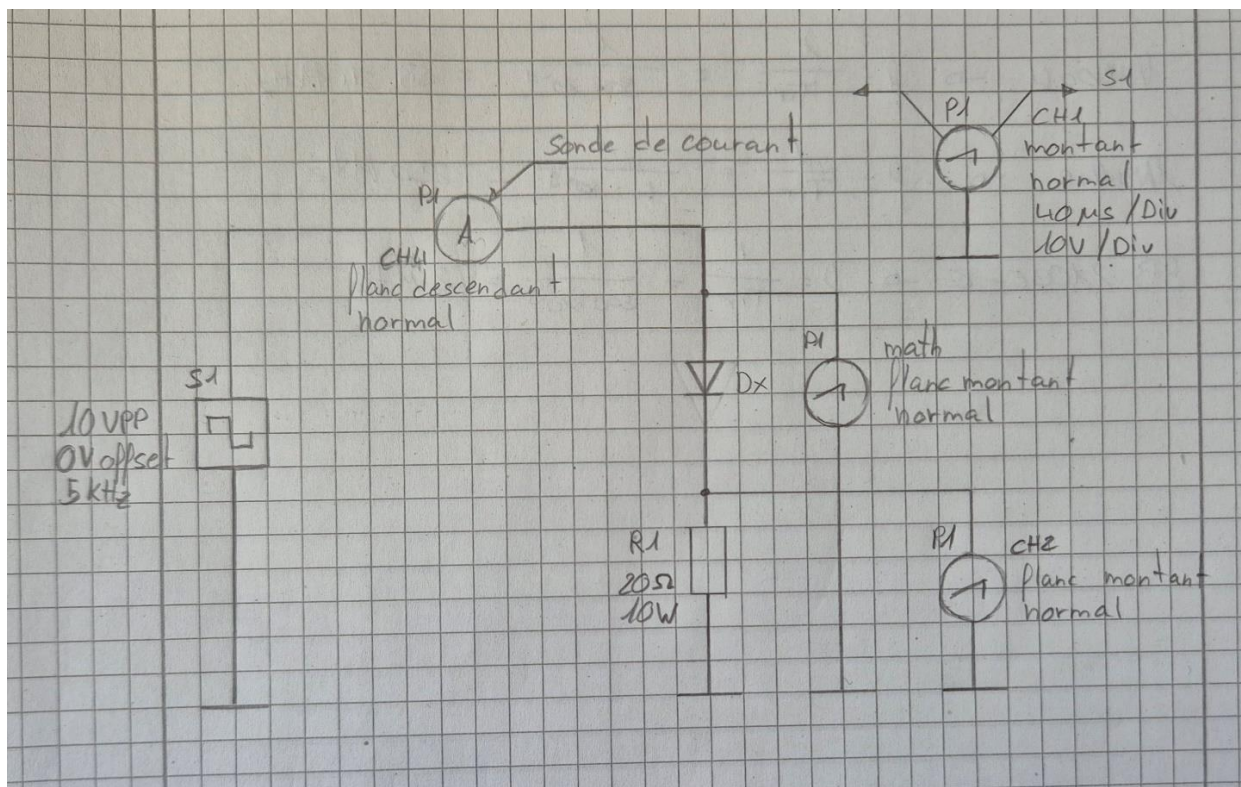 S1
P1
CH1
montant
normal
40 µs / Div
10V / Div
Sonde de courant
P1
A
CH4
flanc descendant
normal
S1
10 VPP
0V offset
5 kHz
Dx
P1
math
flanc montant
normal
R1
20Ω
10W
P1
CH2
flanc montant
normal